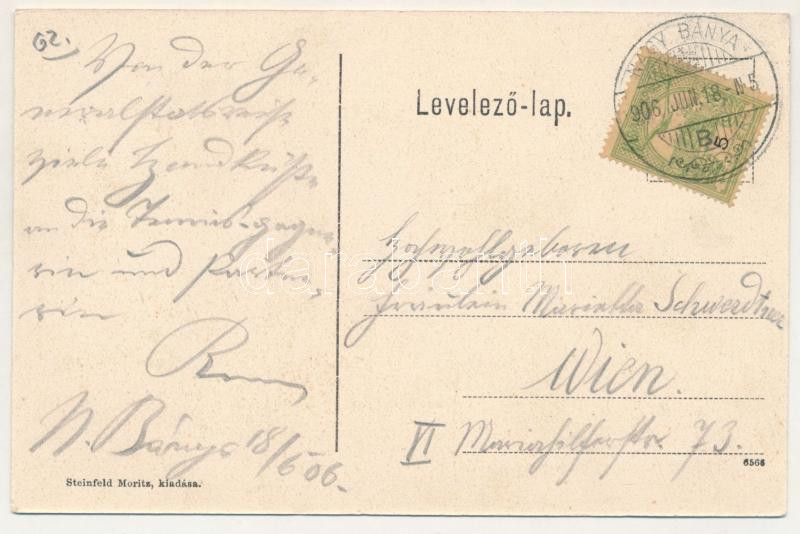 62.
Von der Ge-
neralstabsreise
viele Handküsse
an die Tennis-gegne-
rin und Partne-
rin
N. Bánya 18/6 06.
Steinfeld Moritz, kiadása.
Levelező-lap.
NAGY BÁNYA
906 JUN. 18. N. 5
B
5
Hochwohlgeboren
Fräulein Marietta Schwerdtner
Wien.
VI Mariahilferstr. 73.
6566
darabanth